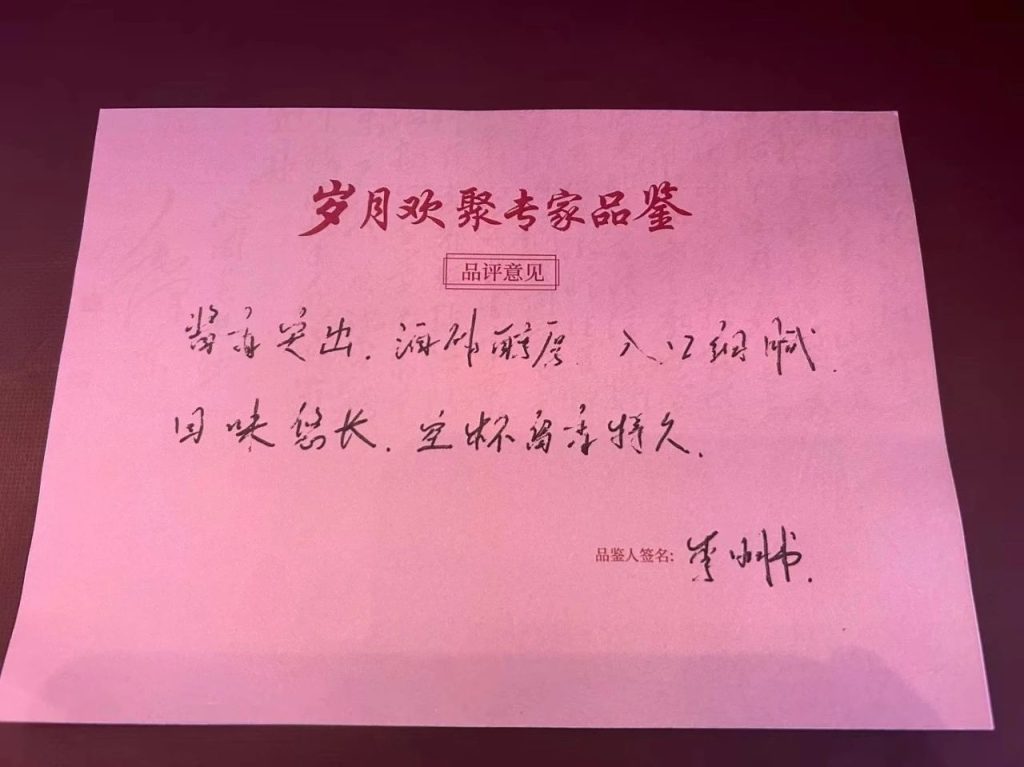 岁月欢聚专家品鉴
品评意见
酱香突出.酒体醇厚.入口细腻.
回味悠长.空杯留香持久.
品鉴人签名:李